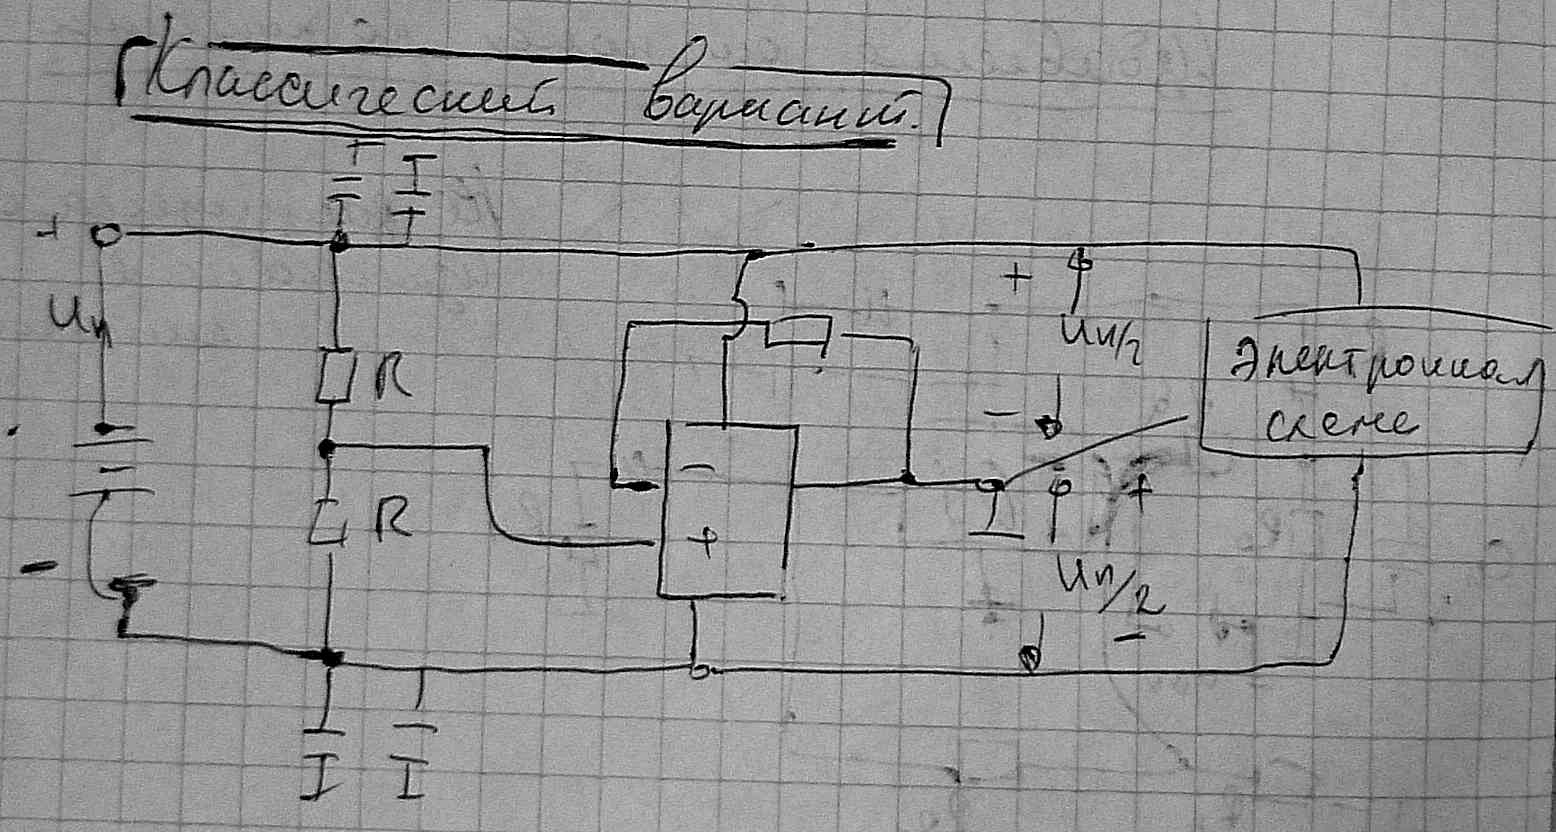 Классический вариант.
+
Uп
R
R
-
-
+
+
Uп/2
-
+
Uп/2
-
Электронная
схема